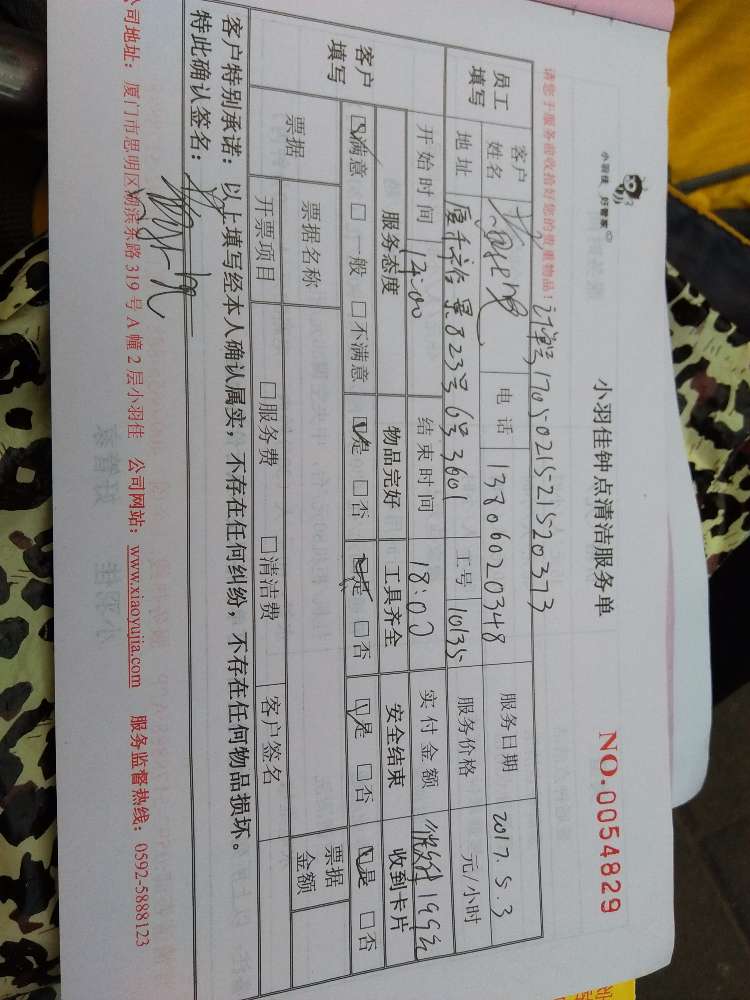 小羽佳 好管家
小羽佳钟点清洁服务单
NO.0054829
请您于服务前收拾好您的贵重物品！
订单号170502152152037​3
员工填写
客户姓名
电话 13806020348
服务日期 2017.5.3
地址 823号6号3601
工号 10135
服务价格 元/小时
开始时间 14:00
结束时间 18:00
实付金额 199元
客户填写
服务态度 物品完好 工具齐全 安全结束 收到卡片
☑满意 □一般 □不满意 ☑是 □否 ☑是 □否 ☑是 □否 ☑是 □否
票据 票据名称 票据金额
开票项目 □服务费 □清洁费 客户签名
客户特别承诺：以上填写经本人确认属实，不存在任何纠纷，不存在任何物品损坏。
特此确认签名：
公司地址：厦门市思明区湖滨东路319号A幢2层小羽佳 公司网站：www.xiaoyujia.com 服务监督热线：0592-5888123